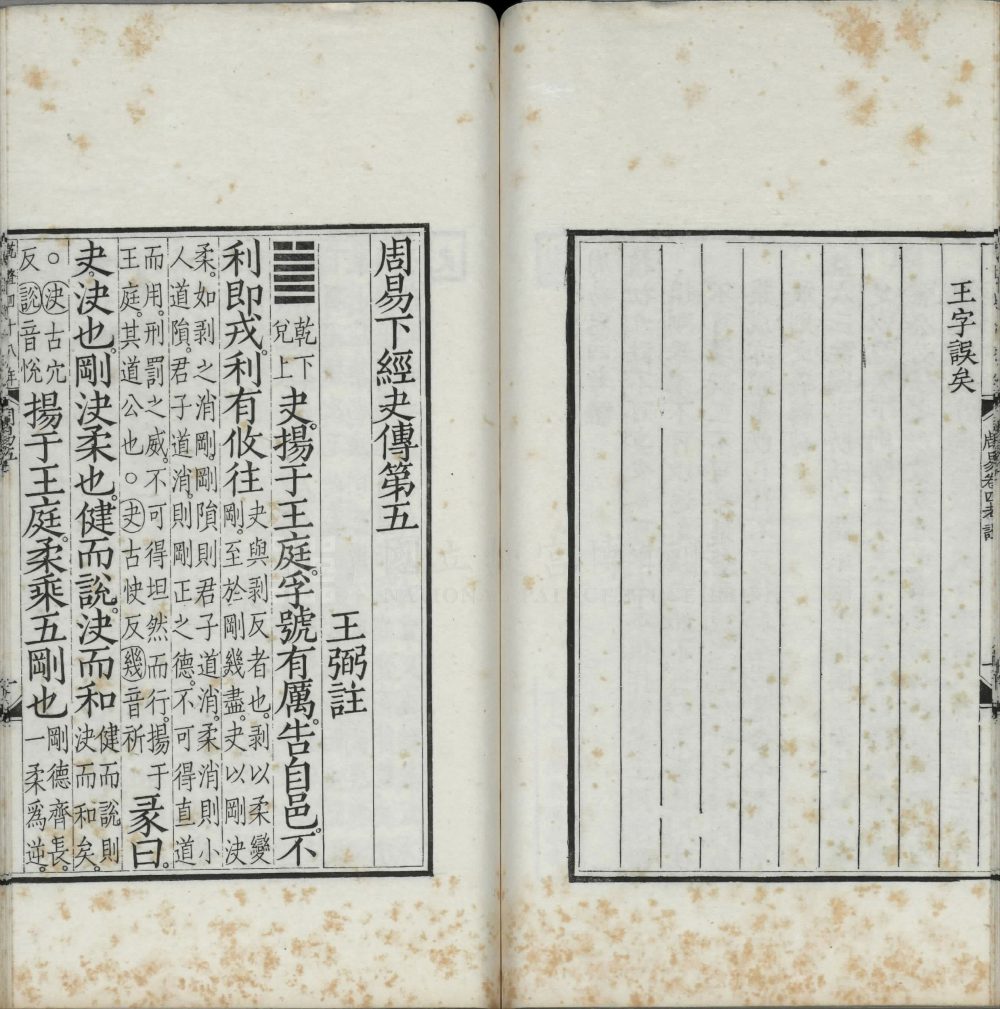 王字誤矣
周易卷四考證
周易下經夬傳第五
王弼註
乾下
兌上
夬。揚于王庭。孚號有厲。告自邑。不
利即戎。利有攸往
夬與剥反者也。剥以柔變
剛。至於剛幾盡。夬以剛決
柔。如剥之消剛。剛隕則君子道消。柔消則小
人道隕。君子道消。則剛正之德。不可得直道
而用。刑罰之威。不可得坦然而行。揚于
王庭。其道公也。○夬古快反幾音祈
彖曰。
夬。決也。剛決柔也。健而說。決而和
健而說則
決而和矣。
○決古穴
反說音悅
揚于王庭。柔乘五剛也
剛德齊長。
一柔爲逆。
乾隆四十八年
周易卷五